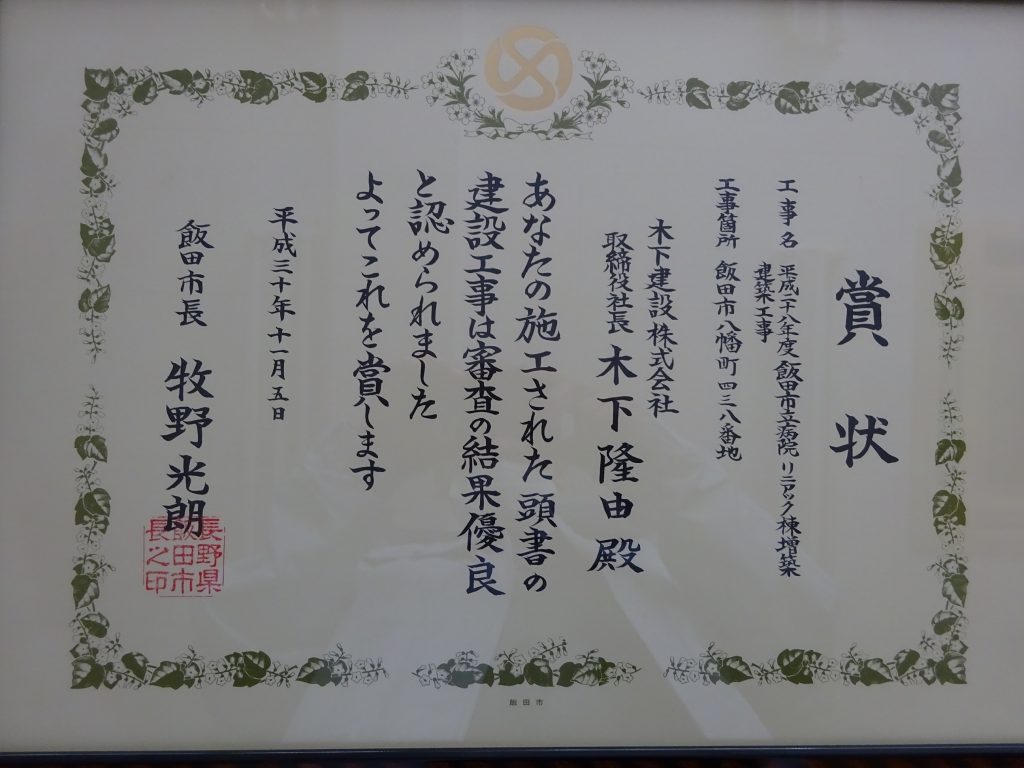 賞状
工事名 平成二十八年度飯田市立病院リニアック棟増築
建築工事
工事箇所 飯田市八幡町四三八番地
木下建設株式会社
取締役社長 木下隆由殿
あなたの施工された頭書の
建設工事は審査の結果優良
と認められました
よってこれを賞します
平成三十年十一月五日
飯田市長 牧野光朗
長野県
飯田市
長之印
飯田市